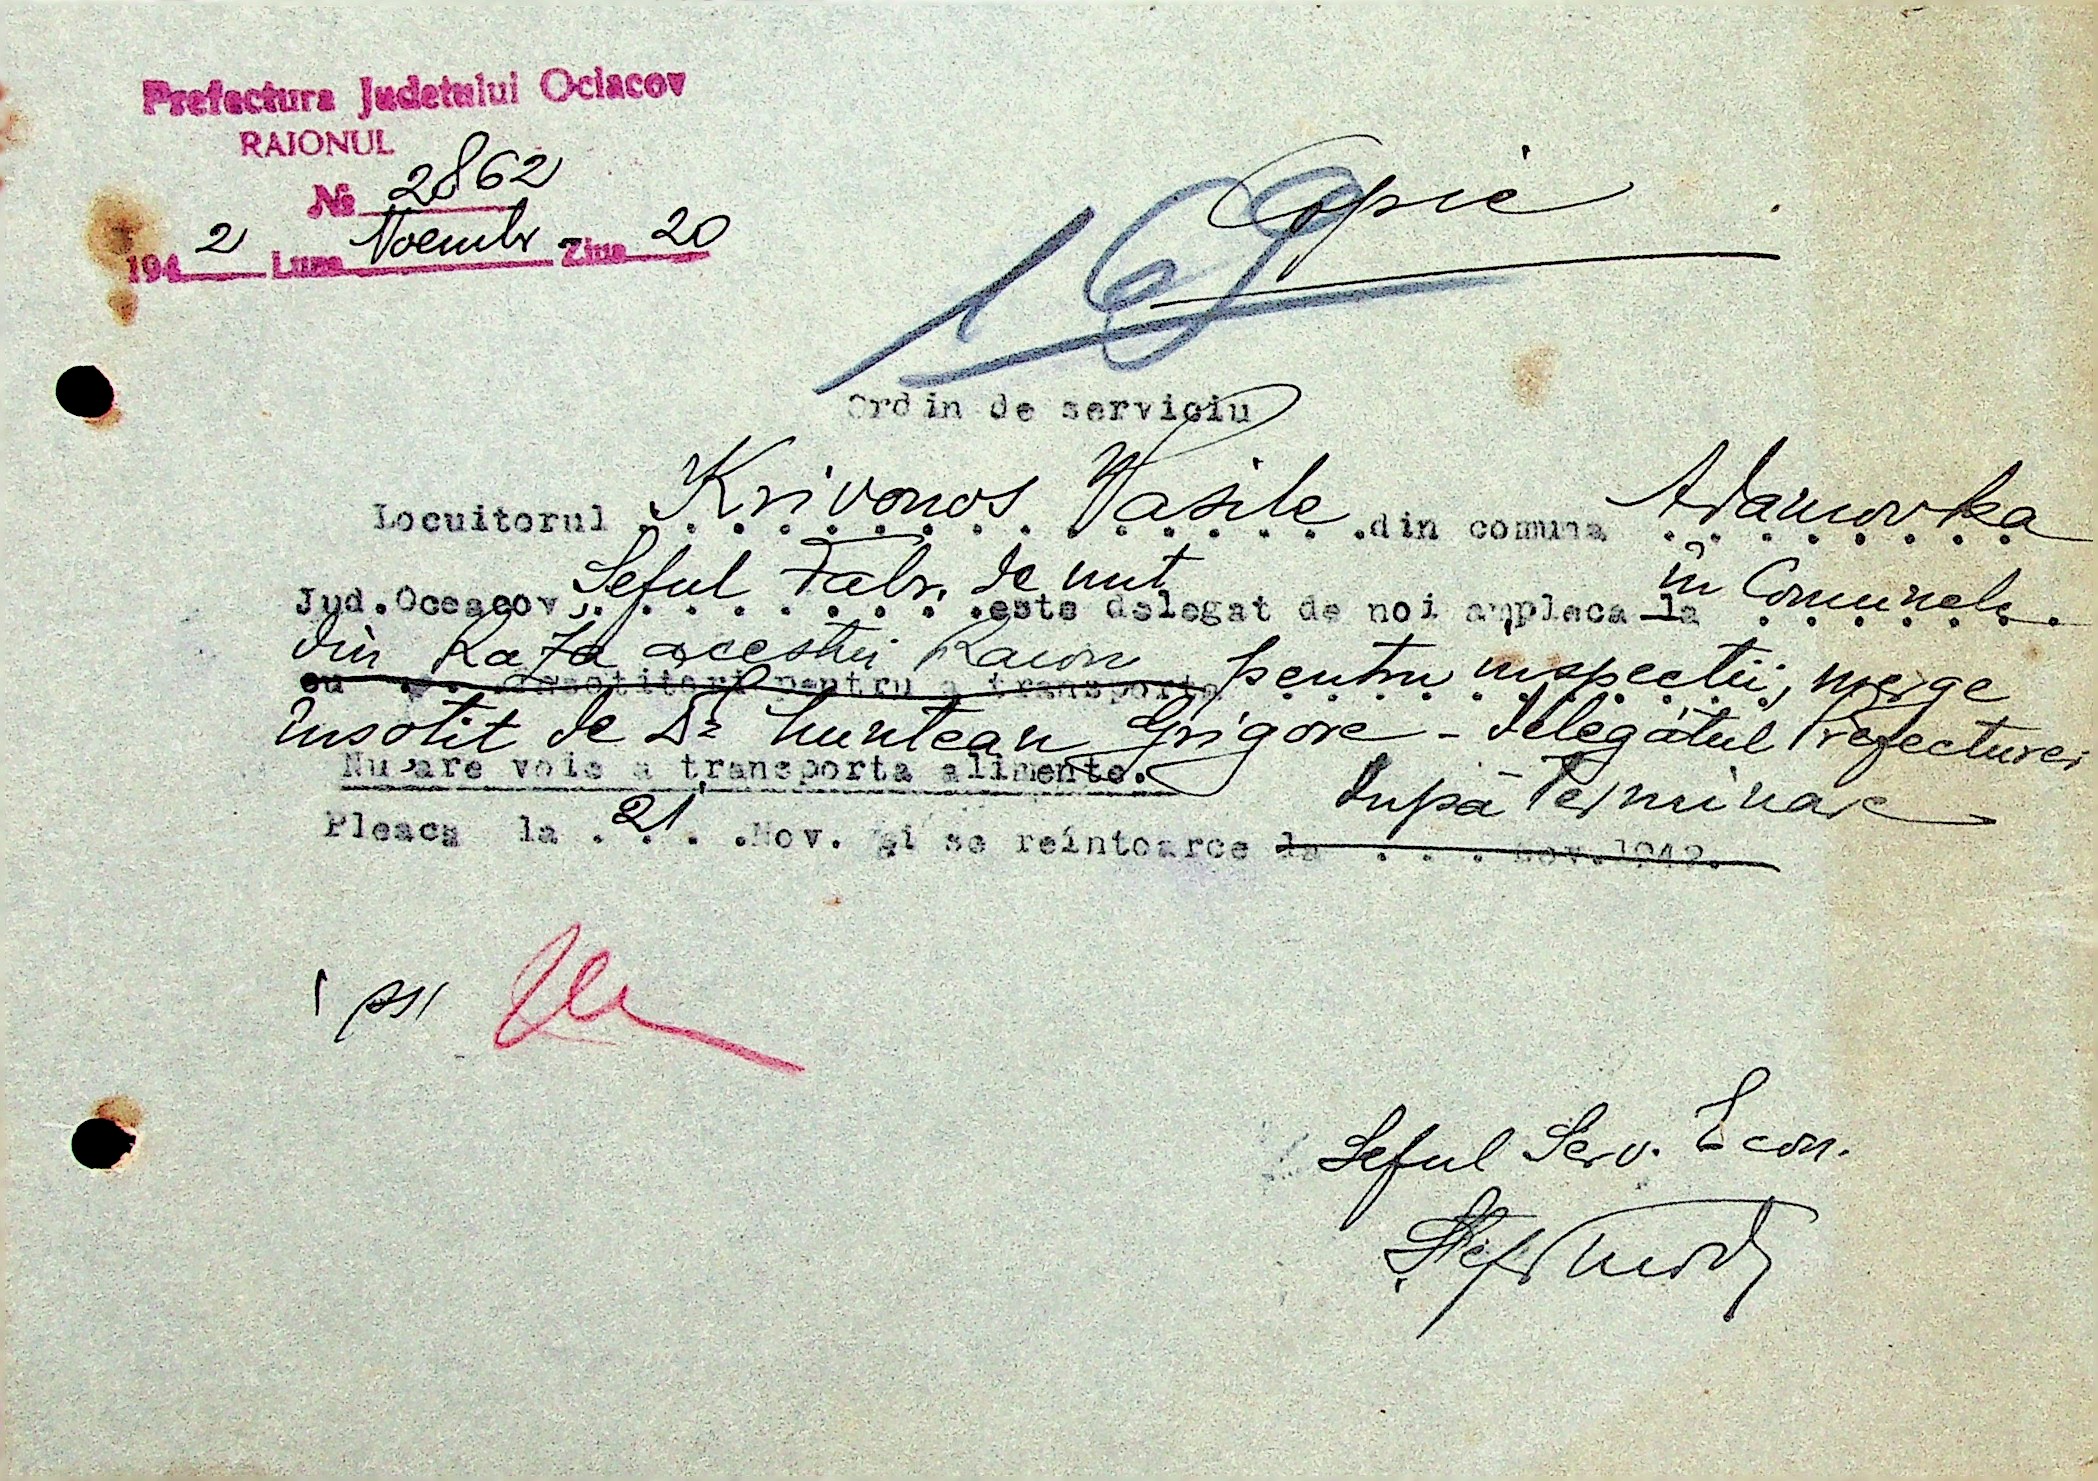 Prefectura Judetului Ociacov
RAIONUL
№ 2862
1942 Luna Noembr Ziua 20
Copie
169
Ordin de serviciu
Locuitorul Krivonos Vasile din comuna Adamovka
Jud.Oceacov, Seful Fabr. de unt este delegat de noi a pleca la în Comunele
din Raza acestui Raion
cu . . . insotitori pentru a transporta pentru inspectii, merge
însotit de Dl Muntean Grigore - delegatul Prefecturei
Nu are voie a transporta alimente.
Pleaca la . 21 . .Nov. si se reintoarce după terminare
la . . . Nov.1942.
Seful Serv. Econ.